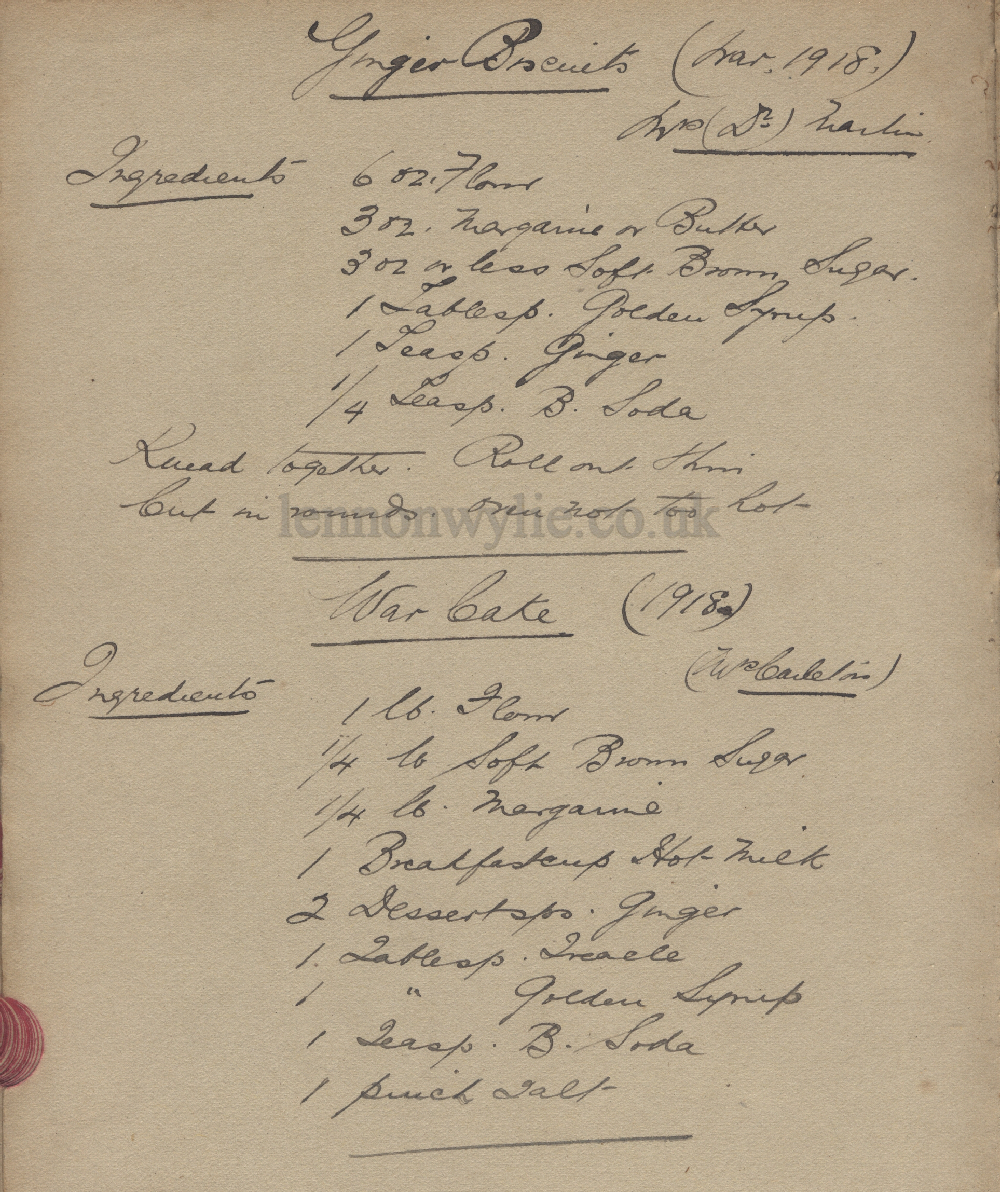 Ginger Biscuits (War. 1918.)
Mrs (Dr) Martin
Ingredients 6 oz. Flour
3 oz. Margarine or Butter
3 oz or less Soft Brown Sugar.
1 Tablesp. Golden Syrup.
1 Teasp. Ginger
1/4 Teasp. B. Soda
Knead together. Roll out thin
Cut in rounds oven not too hot
lennonwylie.co.uk
War Cake (1918)
(Mrs Carleton)
Ingredients
1 lb. Flour
1/4 lb Soft Brown Sugar
1/4 lb. Margarine
1 Breakfastcup Hot Milk
2 Dessertsps. Ginger
1. Tablesp. Treacle
1 " Golden Syrup
1 Teasp. B. Soda
1 pinch Salt